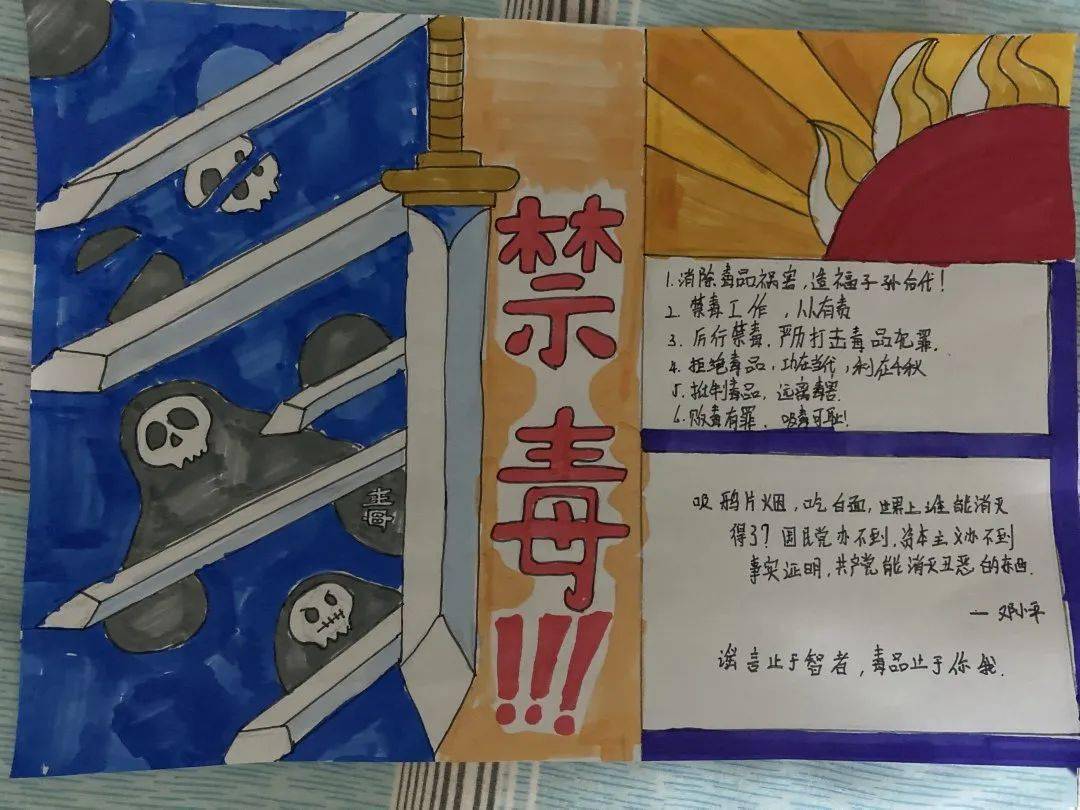 禁毒!!!
毒
1.消除毒品祸害,造福子孙后代!
2.禁毒工作,人人有责
3.厉行禁毒,严厉打击毒品犯罪.
4.拒绝毒品,功在当代,利在千秋
5.抵制毒品,远离毒害.
6.贩毒有罪.吸毒可耻!
吸鸦片烟,吃白面,世界上谁能消灭
得了?国民党办不到,资本主义办不到
事实证明,共产党能消灭丑恶的东西.
—邓小平
谣言止于智者,毒品止于你我.